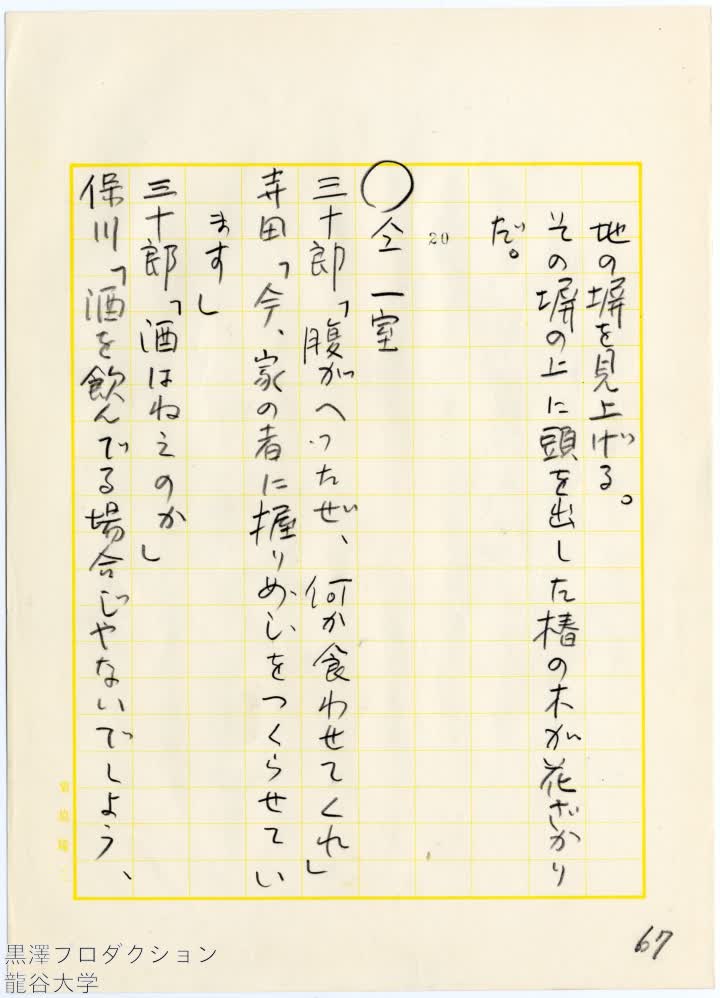 地の塀を見上げる。
その塀の上に頭を出した椿の木が花ざかり
だ。
20
○仝 一室
三十郎「腹がへったぜ、何か食わせてくれ」
寺田「今、家の者に握りめしをつくらせてい
ます」
三十郎「酒はねえのか」
保川「酒を飲んでる場合じゃないでしょう、
67
黒澤プロダクション
龍谷大学